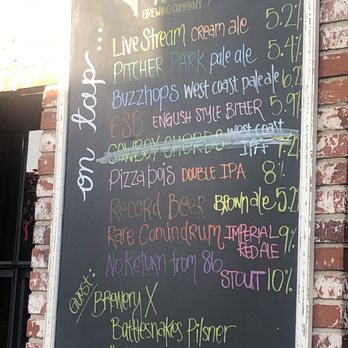 BREWING COMPANY
on tap...
Live Stream cream ale 5.2%
PITCHER PARK pale ale 5.4%
Buzzhops west coast pale ale 6.2
ESB ENGLISH STYLE BITTER 5.9%
COWBOY CHORDS west coast IPA 7.2
Pizza bois DOUBLE IPA 8%
RECORD BEER BROWN ale 5.2
Rare Conundrum IMPERIAL RED ALE 9%
No Return from 86 STOUT 10%
Guest:
Brewery X
Battlesnakes Pilsner